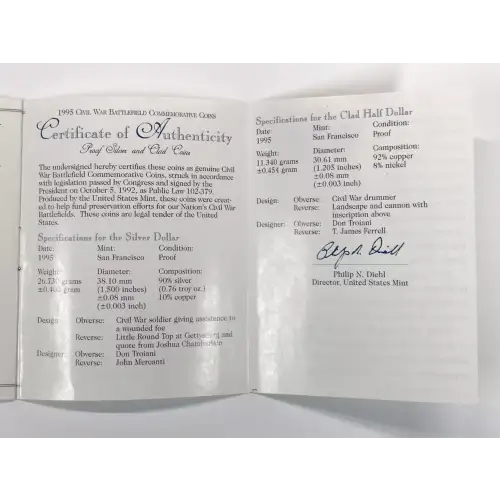 1995 Civil War Battlefield Commemorative Coins
Certificate of Authenticity
Proof Silver and Clad Coin
The undersigned hereby certifies these coins as genuine Civil
War Battlefield Commemorative Coins, struck in accordance
with legislation passed by Congress and signed by the
President on October 5, 1992, as Public Law 102-379.
Produced by the United States Mint, these coins were creat-
ed to help fund preservation efforts for our Nation's Civil War
Battlefields. These coins are legal tender of the United
States.
Specifications for the Silver Dollar
Date: Mint: Condition:
1995 San Francisco Proof
Weight: Diameter: Composition:
26.730 grams 38.10 mm 90% silver
±0.400 gram (1.500 inches) (0.76 troy oz.)
±0.08 mm 10% copper
(±0.003 inch)
Design: Obverse: Civil War soldier giving assistance to
a wounded foe
Reverse: Little Round Top at Gettysburg and
quote from Joshua Chamberlain
Designer: Obverse: Don Troiani
Reverse: John Mercanti
Specifications for the Clad Half Dollar
Date Mint: Condition:
1995 San Francisco Proof
Weight: Diameter: Composition:
11.340 grams 30.61 mm 92% copper
±0.454 gram (1.205 inches) 8% nickel
±0.08 mm
(±0.003 inch)
Design: Obverse: Civil War drummer
Reverse: Landscape and cannon with
inscription above
Designer: Obverse: Don Troiani
Reverse: T. James Ferrell
Philip N. Diehl
Philip N. Diehl
Director, United States Mint